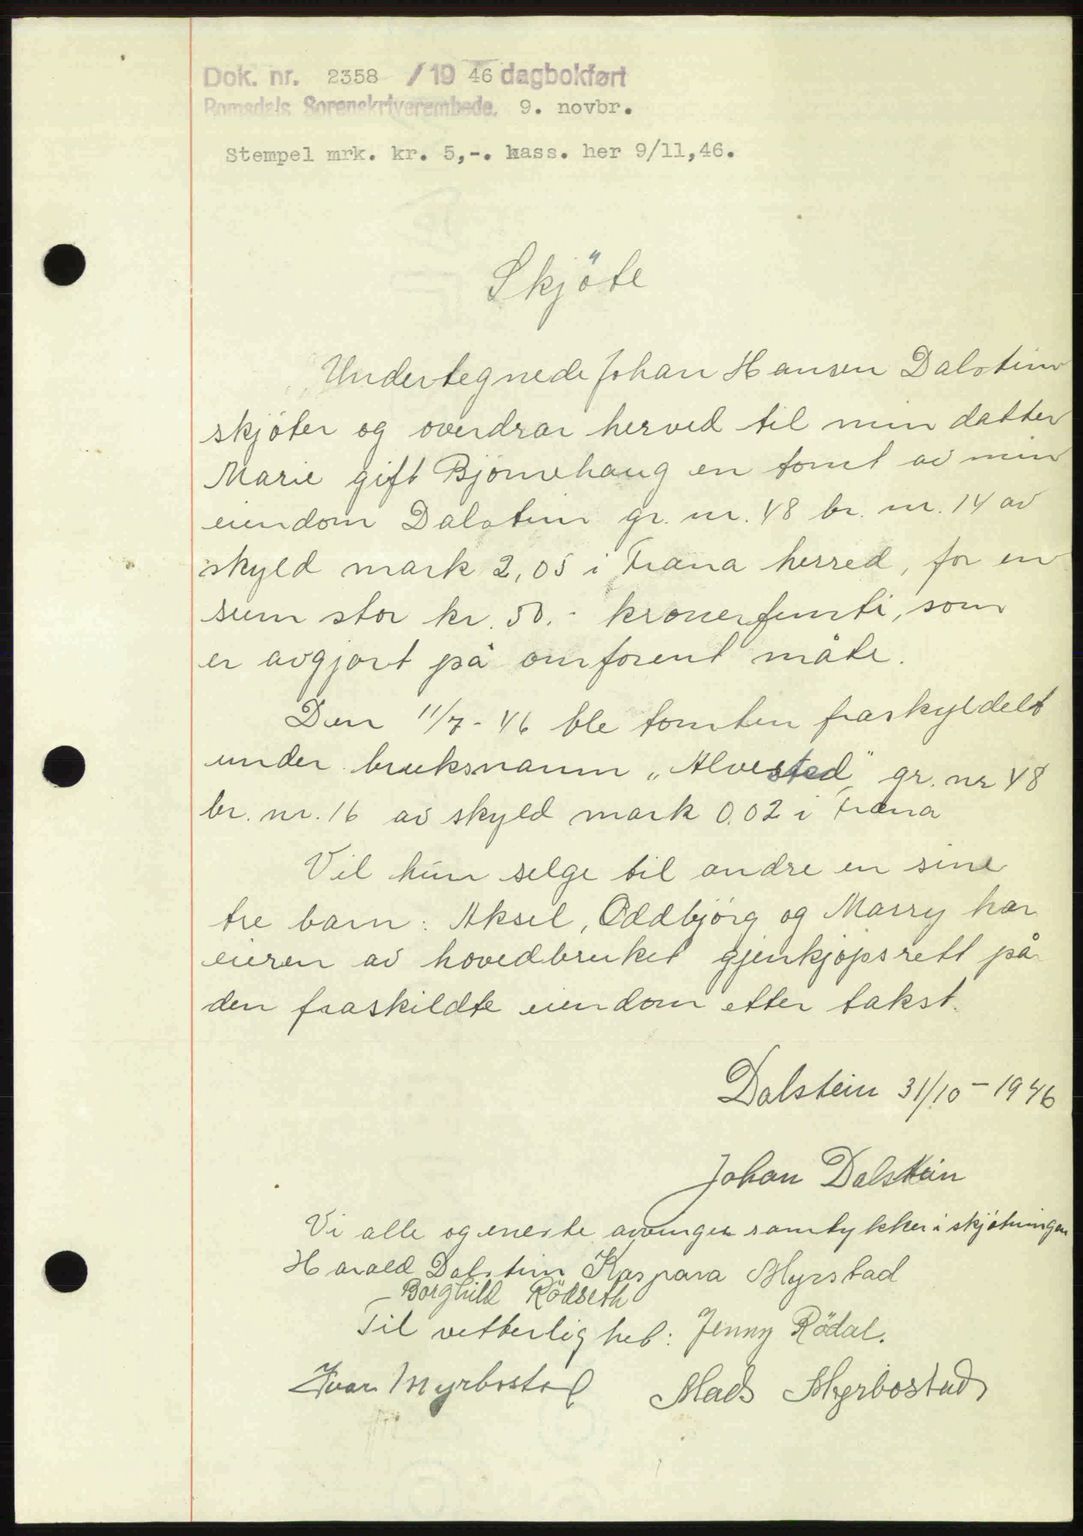 Dok. nr. 2358 /1946 dagbokført
Romsdals Sorenskriverembede. 9. novbr.
Stempel mrk. kr. 5,-. kass. her 9/11,46.
Skjöte
Undertegnede Johan Hansen Dalstein
skjöter og overdrar herved til min datter
Marie gift Björnehaug en tomt av min
eiendom Dalstein gr. nr. 48 br. nr. 14 av
skyld mark 2,05 i Fræna herred, for en
sum stor kr. 50.- kronerfemti, som
er avgjort på omforent måte.
Den 11/7-46 ble tomten fraskyldelt
under bruksnamn „Alvested" gr. nr 48
br. nr. 16 av skyld mark 0.02 i Fræna
Vil hun selge til andre en sine
tre barn: Aksel, Oddbjörg og Marry har
eieren av hovedbruket gjenkjöpsrett på
den fraskildte eiendom etter takst.
Dalstein 31/10-1946
Johan Dalstein
Vi alle og eneste arvinger samtykker i skjötningen
Harald Dalstein Kaspara Myrstad
Borghild Rödseth
Til vetterlighet: Jenny Rödal.
Ivar Myrbostad Mads Myrbostad